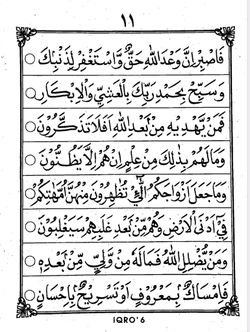 ١١
فَاصْبِرْ اِنَّ وَعْدَ اللّٰهِ حَقٌّ وَّاسْتَغْفِرْ لِذَنْبِكَ
وَسَبِّحْ بِحَمْدِ رَبِّكَ بِالْعَشِيِّ وَالْاِبْكَارِ
فَمَنْ يَّهْدِيْهِ مِنْ بَعْدِ اللّٰهِ اَفَلَا تَذَكَّرُوْنَ
وَمَا لَهُمْ بِذٰلِكَ مِنْ عِلْمٍ اِنْ هُمْ اِلَّا يَظُنُّوْنَ
وَمَا جَعَلَ اَزْوَاجَكُمُ الّٰۤـِٔيْ تُظٰهِرُوْنَ مِنْهُنَّ اُمَّهٰتِكُمْ
فِيْٓ اَدْنَى الْاَرْضِ وَهُمْ مِّنْ بَعْدِ غَلَبِهِمْ سَيَغْلِبُوْنَ
وَمَنْ يُّضْلِلِ اللّٰهُ فَمَا لَهٗ مِنْ وَّلِيٍّ مِّنْ بَعْدِهٖ
فَاِمْسَاكٌ بِمَعْرُوْفٍ اَوْ تَسْرِيْحٌ بِاِحْسَانٍ
IQRO'6